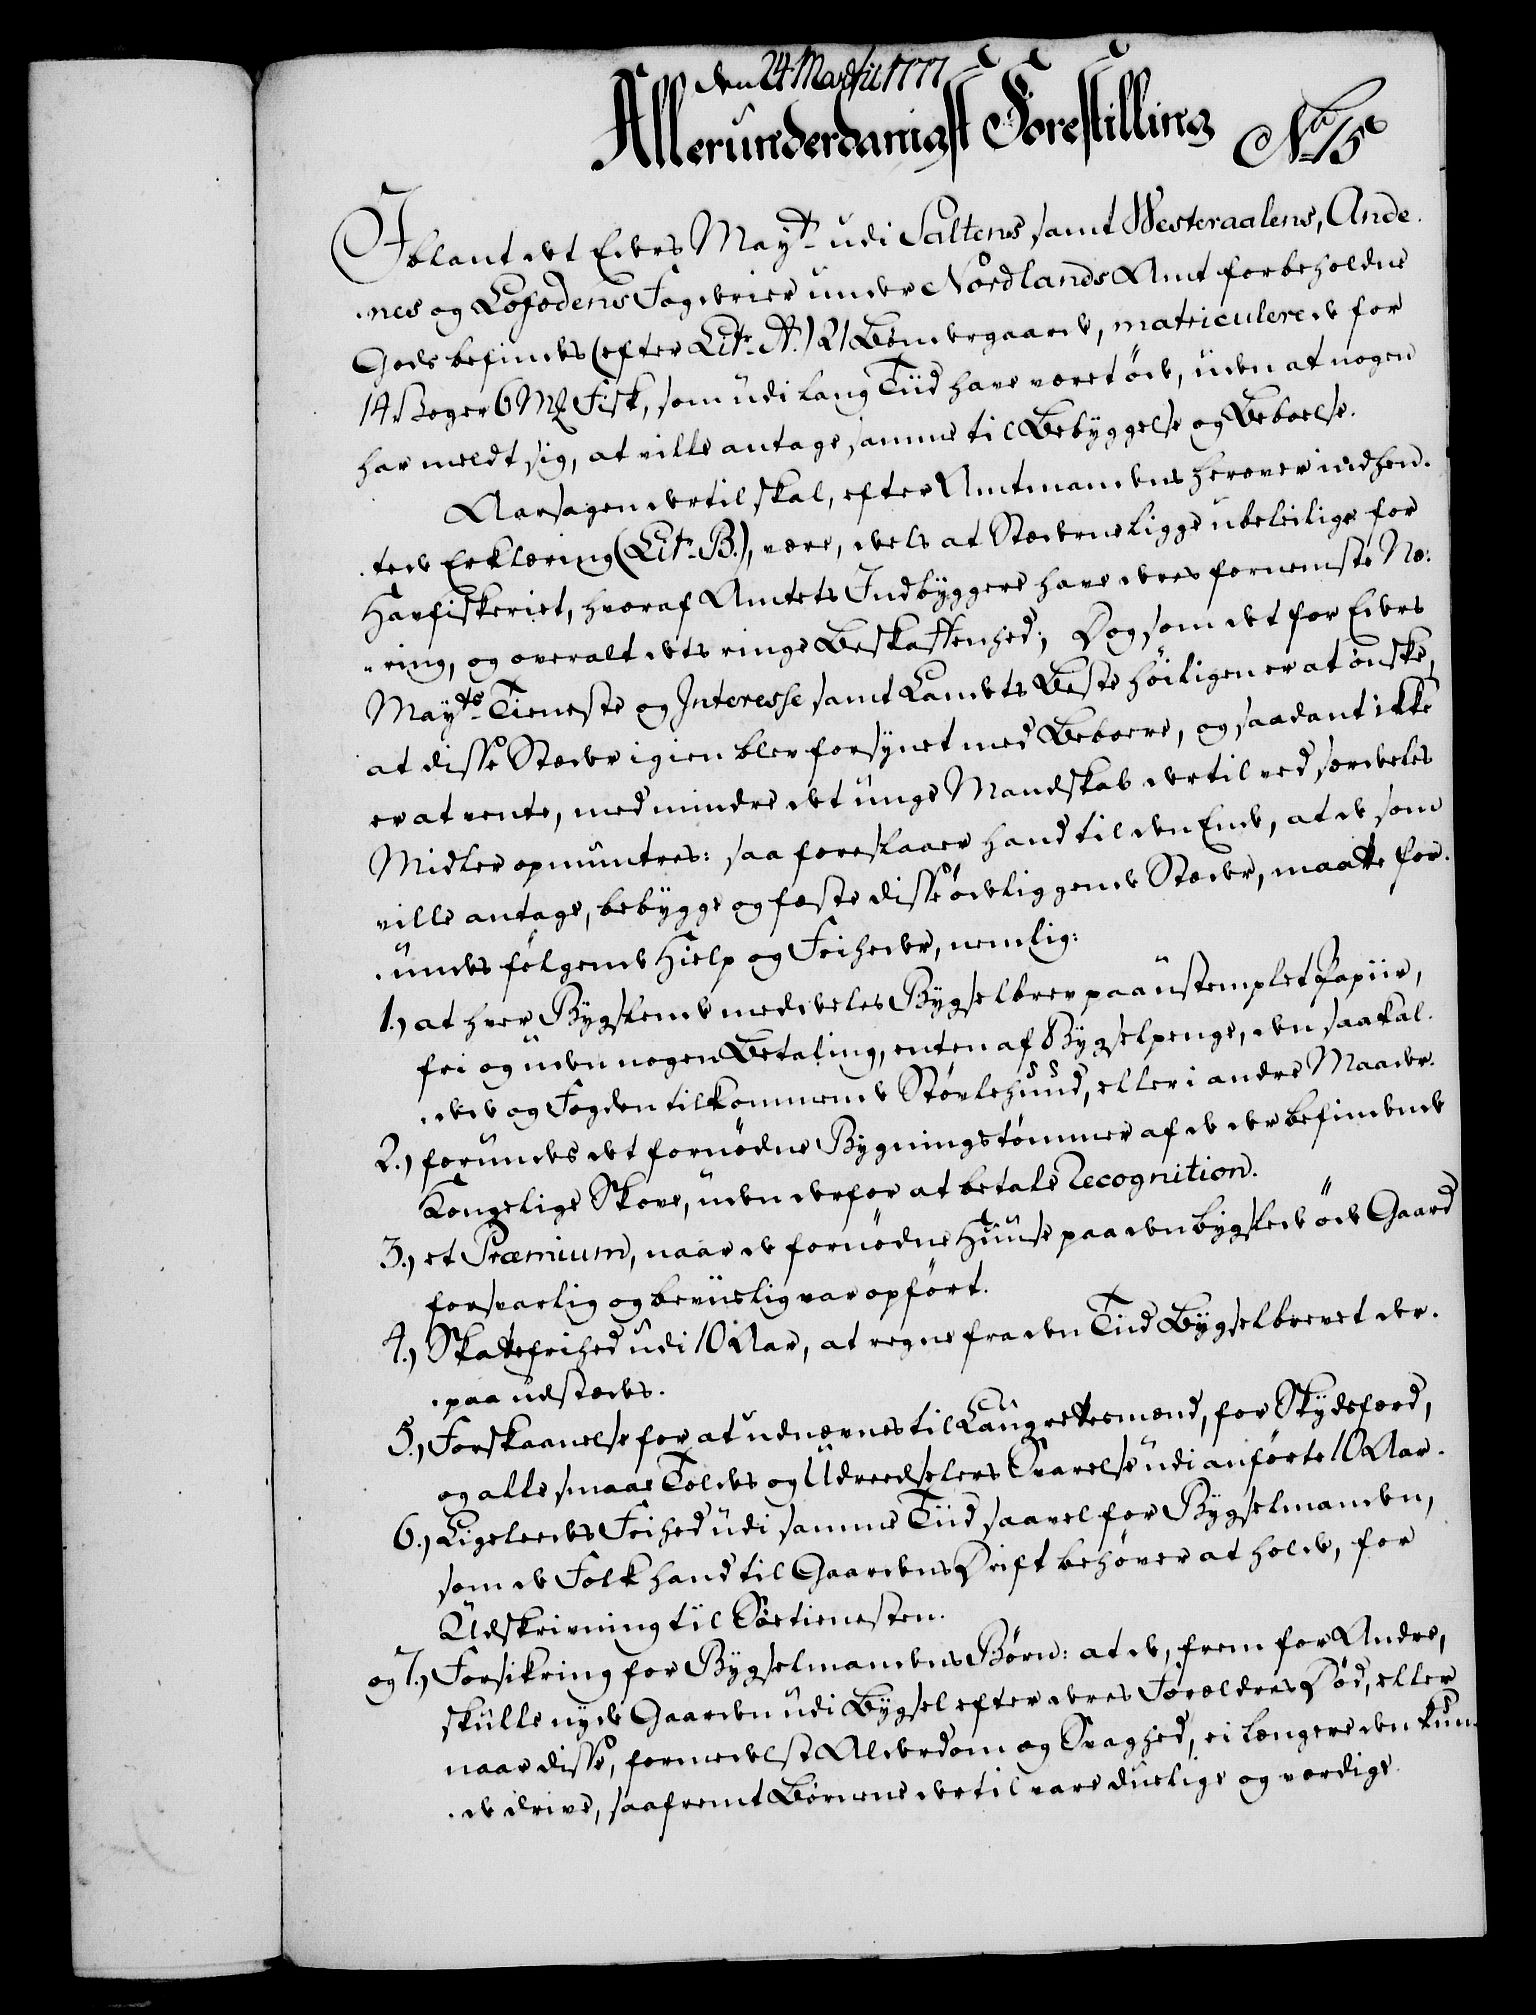 den 24 Martii 1777
Allerunderdanigst Forestilling No 15
Iblant det Eders Mayt. udi Saltens samt Westeraalens, Ande-
-nes og Lofodens Fogderier under Nordlands Amt forbeholdne
Gods befindes (efter Litr. A.) 21 Bøndergaarde, matriculerede for
14 Voger 6 Mk Fisk, som udi lang Tiid have været øde, uden at nogen
har meldt sig, at ville antage samme til Bebyggelse og Beboelse.
Aarsagen dertil skal, efter Amtmandens herover indhen-
-tede Erklæring (Litr. B.), være, deels at Stæderne ligge ubeleilige for
Havfiskeriet, hvoraf Amtets Indbyggere have deres fornemste Næ-
-ring, og overalt dets ringe Beskaffenhed; Dog som det for Eders
Mayts. Tieneste og Interesse samt Landets Beste høiligen er at ønske,
at disse Stæder igien blev forsynet med Beboere, og saadant ikke
er at vente, med mindre det unge Mandskab dertil ved særdeles
Midler opmuntres: saa foreslaaer hand til den Ende, at de som
ville antage, bebygge og fæste disse ødeliggende Stæder, maatte for-
-undes følgende Hielp og Friheder, nemlig:
1., at hver Bygslende meddeles Bygselbrev paa ustemplet Papiir,
frie og uden nogen Betaling, enten af Bygselpenge, den saakal-
-dede og Fogden tilkommende Støvlehund, eller i andre Maader.
2., forundes det fornødne Bygningstømmer af de der befindende
Kongelige Skove, uden derfor at betale Recognition.
3., et Præmium, naar de fornødne Huuse paa den bygslede øde Gaard
forsvarlig og beviislig var opført.
4., Skattefrihed udi 10 Aar, at regne fra den Tiid Bygselbrevet der-
-paa udstædes.
5., Forskaanelse for at udnævnes til Laugrettesmænd, for Skydsfærd,
og alle smaae Tolders og Udreedselers Svarelse udi anførte 10 Aar.
6., Ligeleedes Frihed udi samme Tiid saavel for Bygselmanden,
som de Folk hand til Gaardens Drift behøver at holde, for
Udskrivning til Søetienesten.
og 7., Forsikring for Bygselmandens Børn: at de, frem for Andre,
skulle nyde Gaarden udi Bygsel efter deres Forældres Død, eller
naar disse, formedelst Alderdom og Svaghed, ei længere den kun-
-de drive, saafremt Børnene dertil vare duelige og værdige